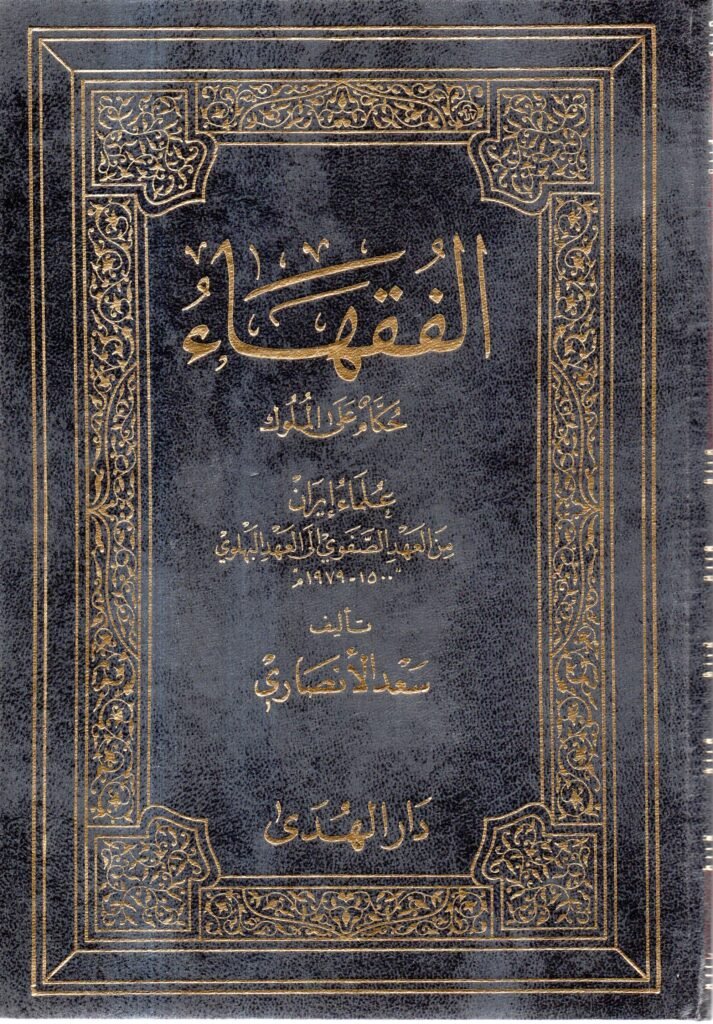 الفُقهَاءُ
حُكَّامٌ عَلَى المُلُوك
عُلَمَاءُ إيرَانْ
مِنَ العَهْدِ الصَّفَوي إلَى العَهْدِ البَهْلَوي
١٥٠٠-١٩٧٩م
تأليف
سَعْد الأنصَاري
دَار الهُدَى